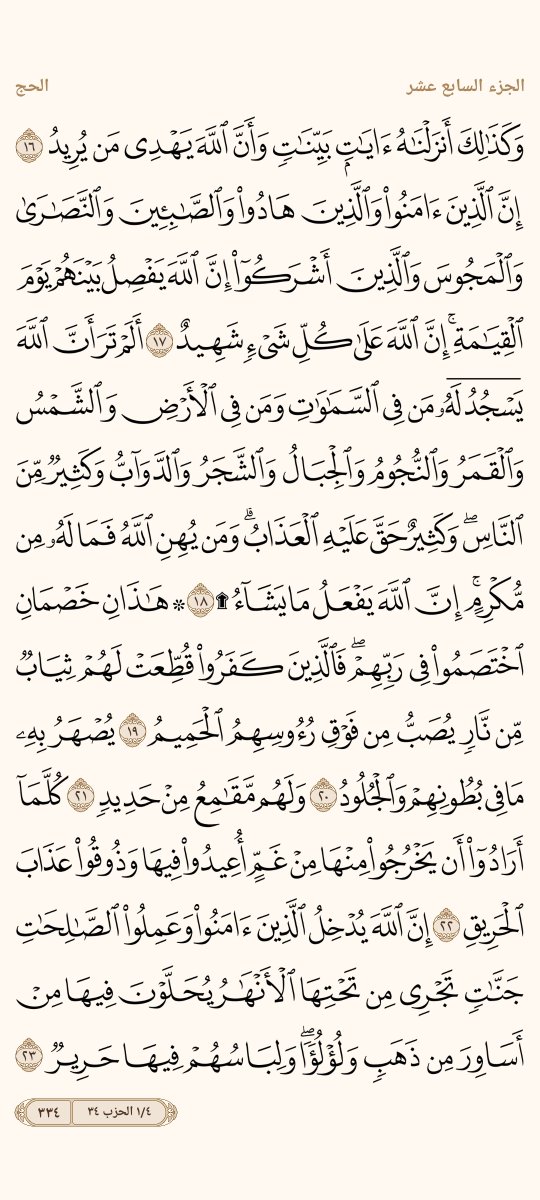 الجزء السابع عشر
الحج
وَكَذَٰلِكَ أَنزَلْنَٰهُ ءَايَٰتٍۭ بَيِّنَٰتٍ وَأَنَّ ٱللَّهَ يَهْدِى مَن يُرِيدُ ١٦
إِنَّ ٱلَّذِينَ ءَامَنُوا۟ وَٱلَّذِينَ هَادُوا۟ وَٱلصَّٰبِـِٔينَ وَٱلنَّصَٰرَىٰ
وَٱلْمَجُوسَ وَٱلَّذِينَ أَشْرَكُوٓا۟ إِنَّ ٱللَّهَ يَفْصِلُ بَيْنَهُمْ يَوْمَ
ٱلْقِيَٰمَةِ ۚ إِنَّ ٱللَّهَ عَلَىٰ كُلِّ شَىْءٍ شَهِيدٌ ١٧ أَلَمْ تَرَ أَنَّ ٱللَّهَ
يَسْجُدُ لَهُۥ مَن فِى ٱلسَّمَٰوَٰتِ وَمَن فِى ٱلْأَرْضِ وَٱلشَّمْسُ
وَٱلْقَمَرُ وَٱلنُّجُومُ وَٱلْجِبَالُ وَٱلشَّجَرُ وَٱلدَّوَآبُّ وَكَثِيرٌ مِّنَ
ٱلنَّاسِ ۖ وَكَثِيرٌ حَقَّ عَلَيْهِ ٱلْعَذَابُ ۗ وَمَن يُهِنِ ٱللَّهُ فَمَا لَهُۥ مِن
مُّكْرِمٍ ۚ إِنَّ ٱللَّهَ يَفْعَلُ مَا يَشَآءُ ۩ ١٨ ۞ هَٰذَانِ خَصْمَانِ
ٱخْتَصَمُوا۟ فِى رَبِّهِمْ ۖ فَٱلَّذِينَ كَفَرُوا۟ قُطِّعَتْ لَهُمْ ثِيَابٌ
مِّن نَّارٍ يُصَبُّ مِن فَوْقِ رُءُوسِهِمُ ٱلْحَمِيمُ ١٩ يُصْهَرُ بِهِۦ
مَا فِى بُطُونِهِمْ وَٱلْجُلُودُ ٢٠ وَلَهُم مَّقَٰمِعُ مِنْ حَدِيدٍ ٢١ كُلَّمَآ
أَرَادُوٓا۟ أَن يَخْرُجُوا۟ مِنْهَا مِنْ غَمٍّ أُعِيدُوا۟ فِيهَا وَذُوقُوا۟ عَذَابَ
ٱلْحَرِيقِ ٢٢ إِنَّ ٱللَّهَ يُدْخِلُ ٱلَّذِينَ ءَامَنُوا۟ وَعَمِلُوا۟ ٱلصَّٰلِحَٰتِ
جَنَّٰتٍ تَجْرِى مِن تَحْتِهَا ٱلْأَنْهَٰرُ يُحَلَّوْنَ فِيهَا مِنْ
أَسَاوِرَ مِن ذَهَبٍ وَلُؤْلُؤًا ۖ وَلِبَاسُهُمْ فِيهَا حَرِيرٌ ٢٣
١/٤ الحزب ٣٤
٣٣٤